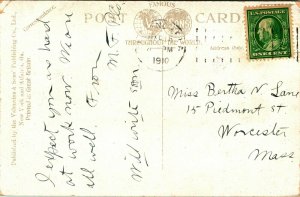 POST CARD
FAMOUS
THROUGHOUT THE WORLD
1910
PM
U.S. POSTAGE
I expect you are hard
at work now. Mom
all well. From
M.F.
Will write soon
Miss Bertha N. Lane
15 Piedmont St.
Worcester
Mass
Published by the Valentine & Sons Publishing Co.,
New York and
Printed in Great Britain.